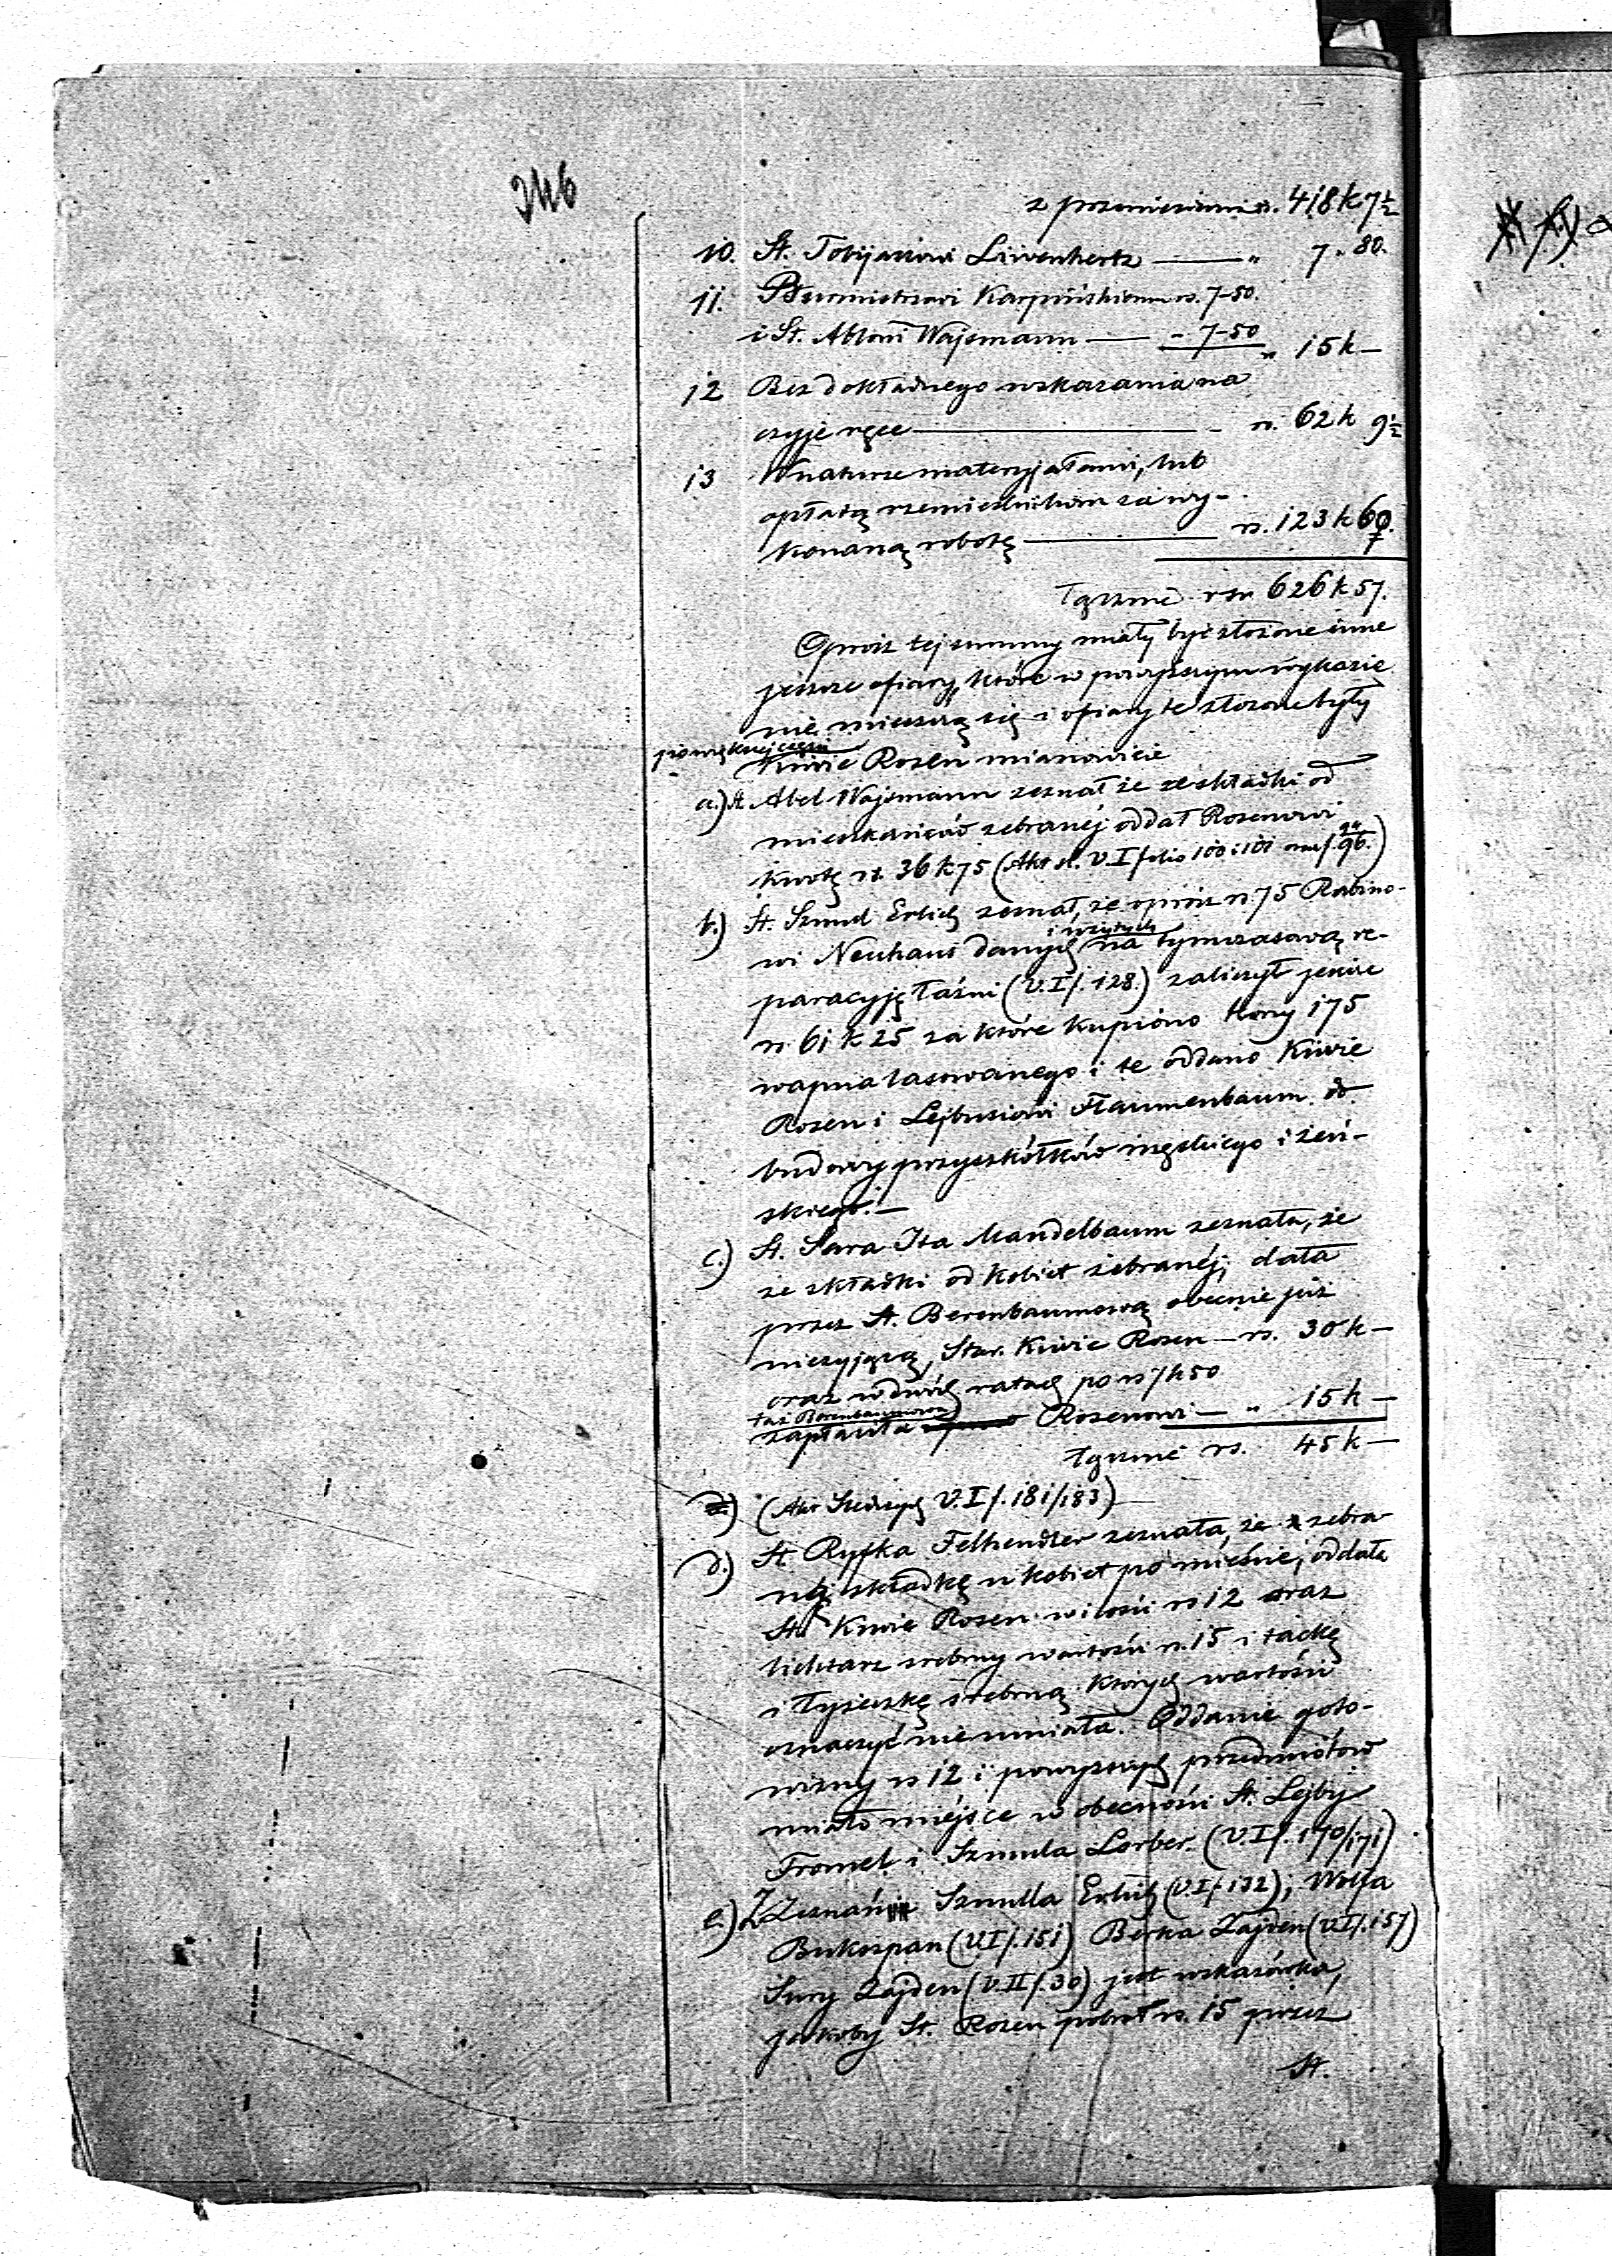 246
z przeniesienia rs. 418 k 7½
10. St. Tobijaszowi Liwenhertz — " 7 " 80.
11. Burmistrzowi Karpińskiemu rs. 7-50.
i St. Ablowi Wajsmann — - 7-50 " 15 k —
12 Bez dokładnego wskazania na
czyje ręce — rs. 62 k 9½
13 W naturze materyjałami, lub
opłatą rzemieślnikom za wy-
konaną robotę — rs. 123 k 60.
Łącznie rsr. 626 k 57.
Oprócz tej summy miały być złożone inne
jeszcze ofiary, które w powyższym wykazie
nie mieszczą się i ofiary te złożone były
po większej części
Kiwie Rosen mianowicie
a.) St. Abel Wajsmann zeznał że ze składki od
mieszkańców zebranej oddał Rosenowi
kwotę rs. 36 k 75 (Akt śl. V. I folio 100 i 101 96.)
b.) St. Szmul Erlich zeznał, że oprócz rs 75 Rabino-
i wziętych
wi Neuhaus danych na tymczasową re-
paracyję łaźni (V. I f. 128.) zaliczył jeszcze
rs. 61 k 25 za które kupiono 175
wapna lasowanego i te oddano Kiwie
Rosen i Lejbusiowi Flaumenbaum do
budowy przyszkółków męskiego i żeń-
skiego. —
c.) St. Sara Ita Mandelbaum zeznała, że
ze składki od kobiet zebranej, dała
przez St. Berenbaumową obecnie już
nieżyjącą, Star. Kiwie Rosen — rs. 30 k —
oraz w dwóch ratach po rs 7 k 50
taż Berenbaumowa
zapłaciła Rosenowi — " 15 k —
łącznie rs. 45 k —
d.) (Akt Śledczych V. I f. 181/183)
d.) St. Ryfka Felhendler zeznała, że zebra-
ną składkę u kobiet po mieście, oddała
St. Kiwie Rosen w ilości rs 12 oraz
lichtarz srebrny wartości rs. 15 i tackę
i łyżeczkę srebrną których wartości
oznaczyć nie umiała. Oddanie goto-
wizny rs 12 i powyższych przedmiotów
miało miejsce w obecności St. Lejby
Fromel i Szmula Lorber. (V I f. 170/171)
e.) Z Zeznań Szmula Erlich (V. I f 132), Wolfa
Bukszpan (V I f. 151) Berka Zajden (V I f. 157)
Sury Zajden (V. II f. 30) jest wskazówka,
jakoby St. Rosen pobrał rs. 15 przez
St.